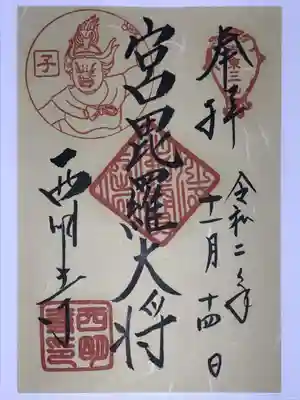 奉拝
令和二年
十一月十四日
宮毘羅大将
子
西明寺